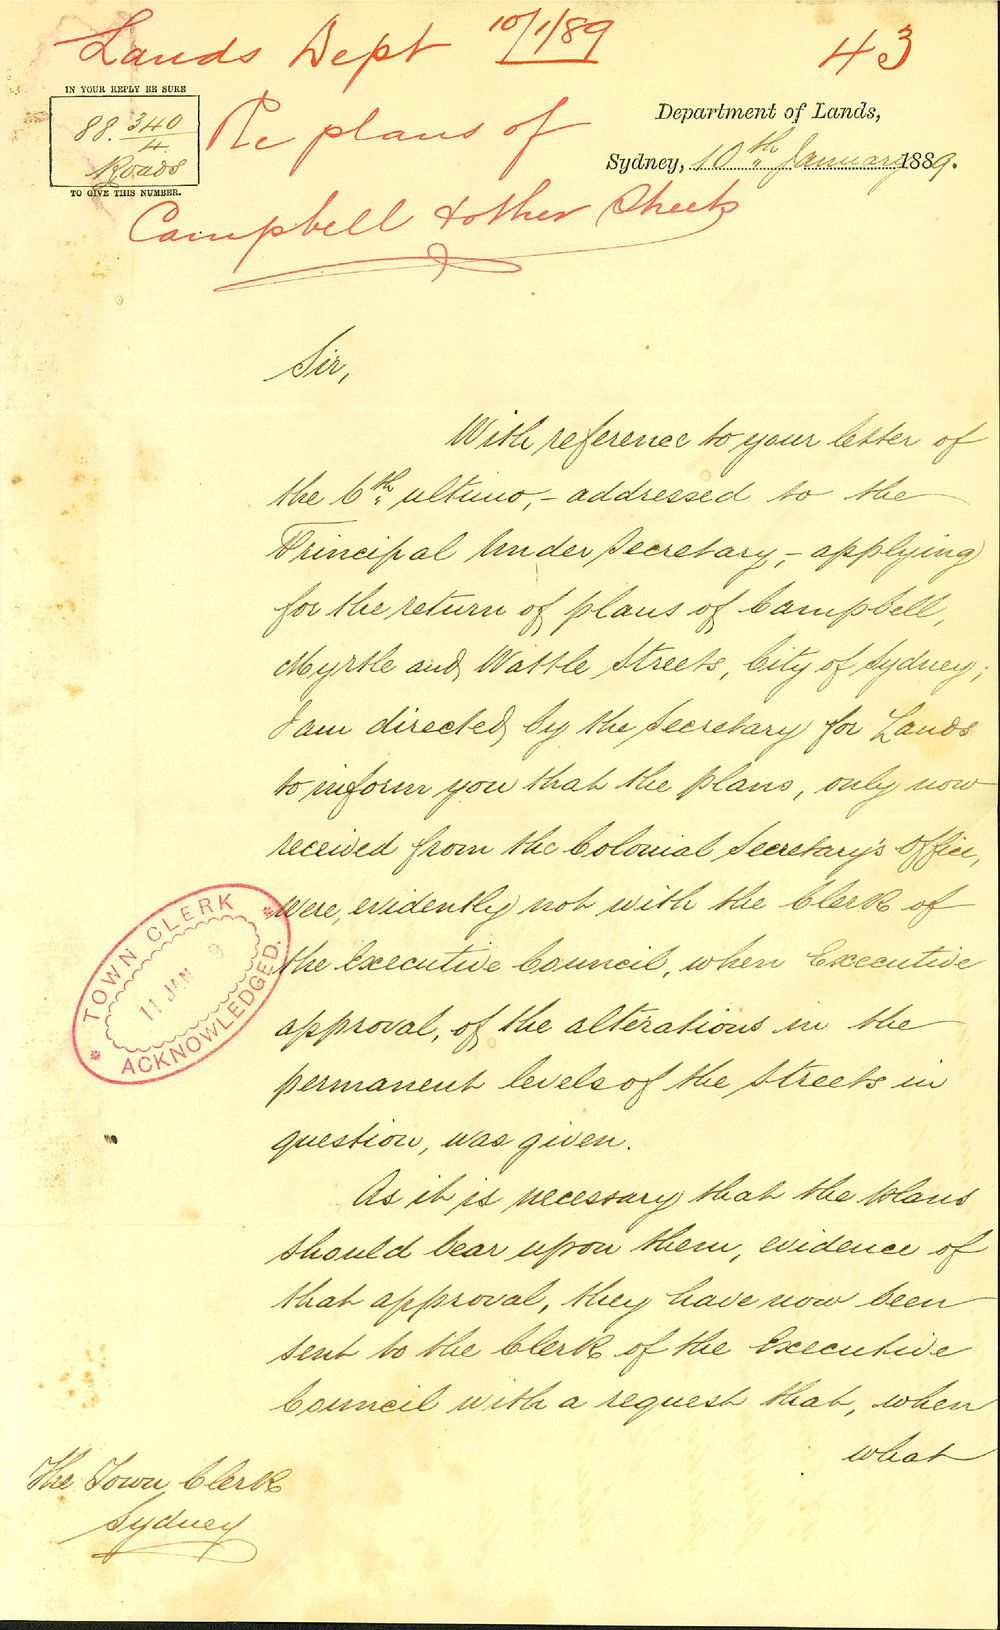 Lands Dept 10/1/89 43
IN YOUR REPLY BE SURE
88.340/4
Roads
TO GIVE THIS NUMBER.
Re plans of
Campbell & other Streets
Department of Lands,
Sydney, 10th January 1889.
Sir,
With reference to your letter of
the 6th ultimo, - addressed to the
Principal Under Secretary, - applying
for the return of plans of Campbell,
Myrtle and Wattle Streets, City of Sydney;
I am directed by the Secretary for Lands
to inform you that the plans, only now
received from the Colonial Secretary's Office,
were, evidently not with the Clerk of
the Executive Council, when Executive
approval, of the alterations in the
permanent levels of the Streets in
question, was given.
As it is necessary that the plans
should bear upon them, evidence of
that approval, they have now been
sent to the Clerk of the Executive
Council with a request that, when
what
The Town Clerk
Sydney
TOWN CLERK
11 JAN 9
ACKNOWLEDGED.